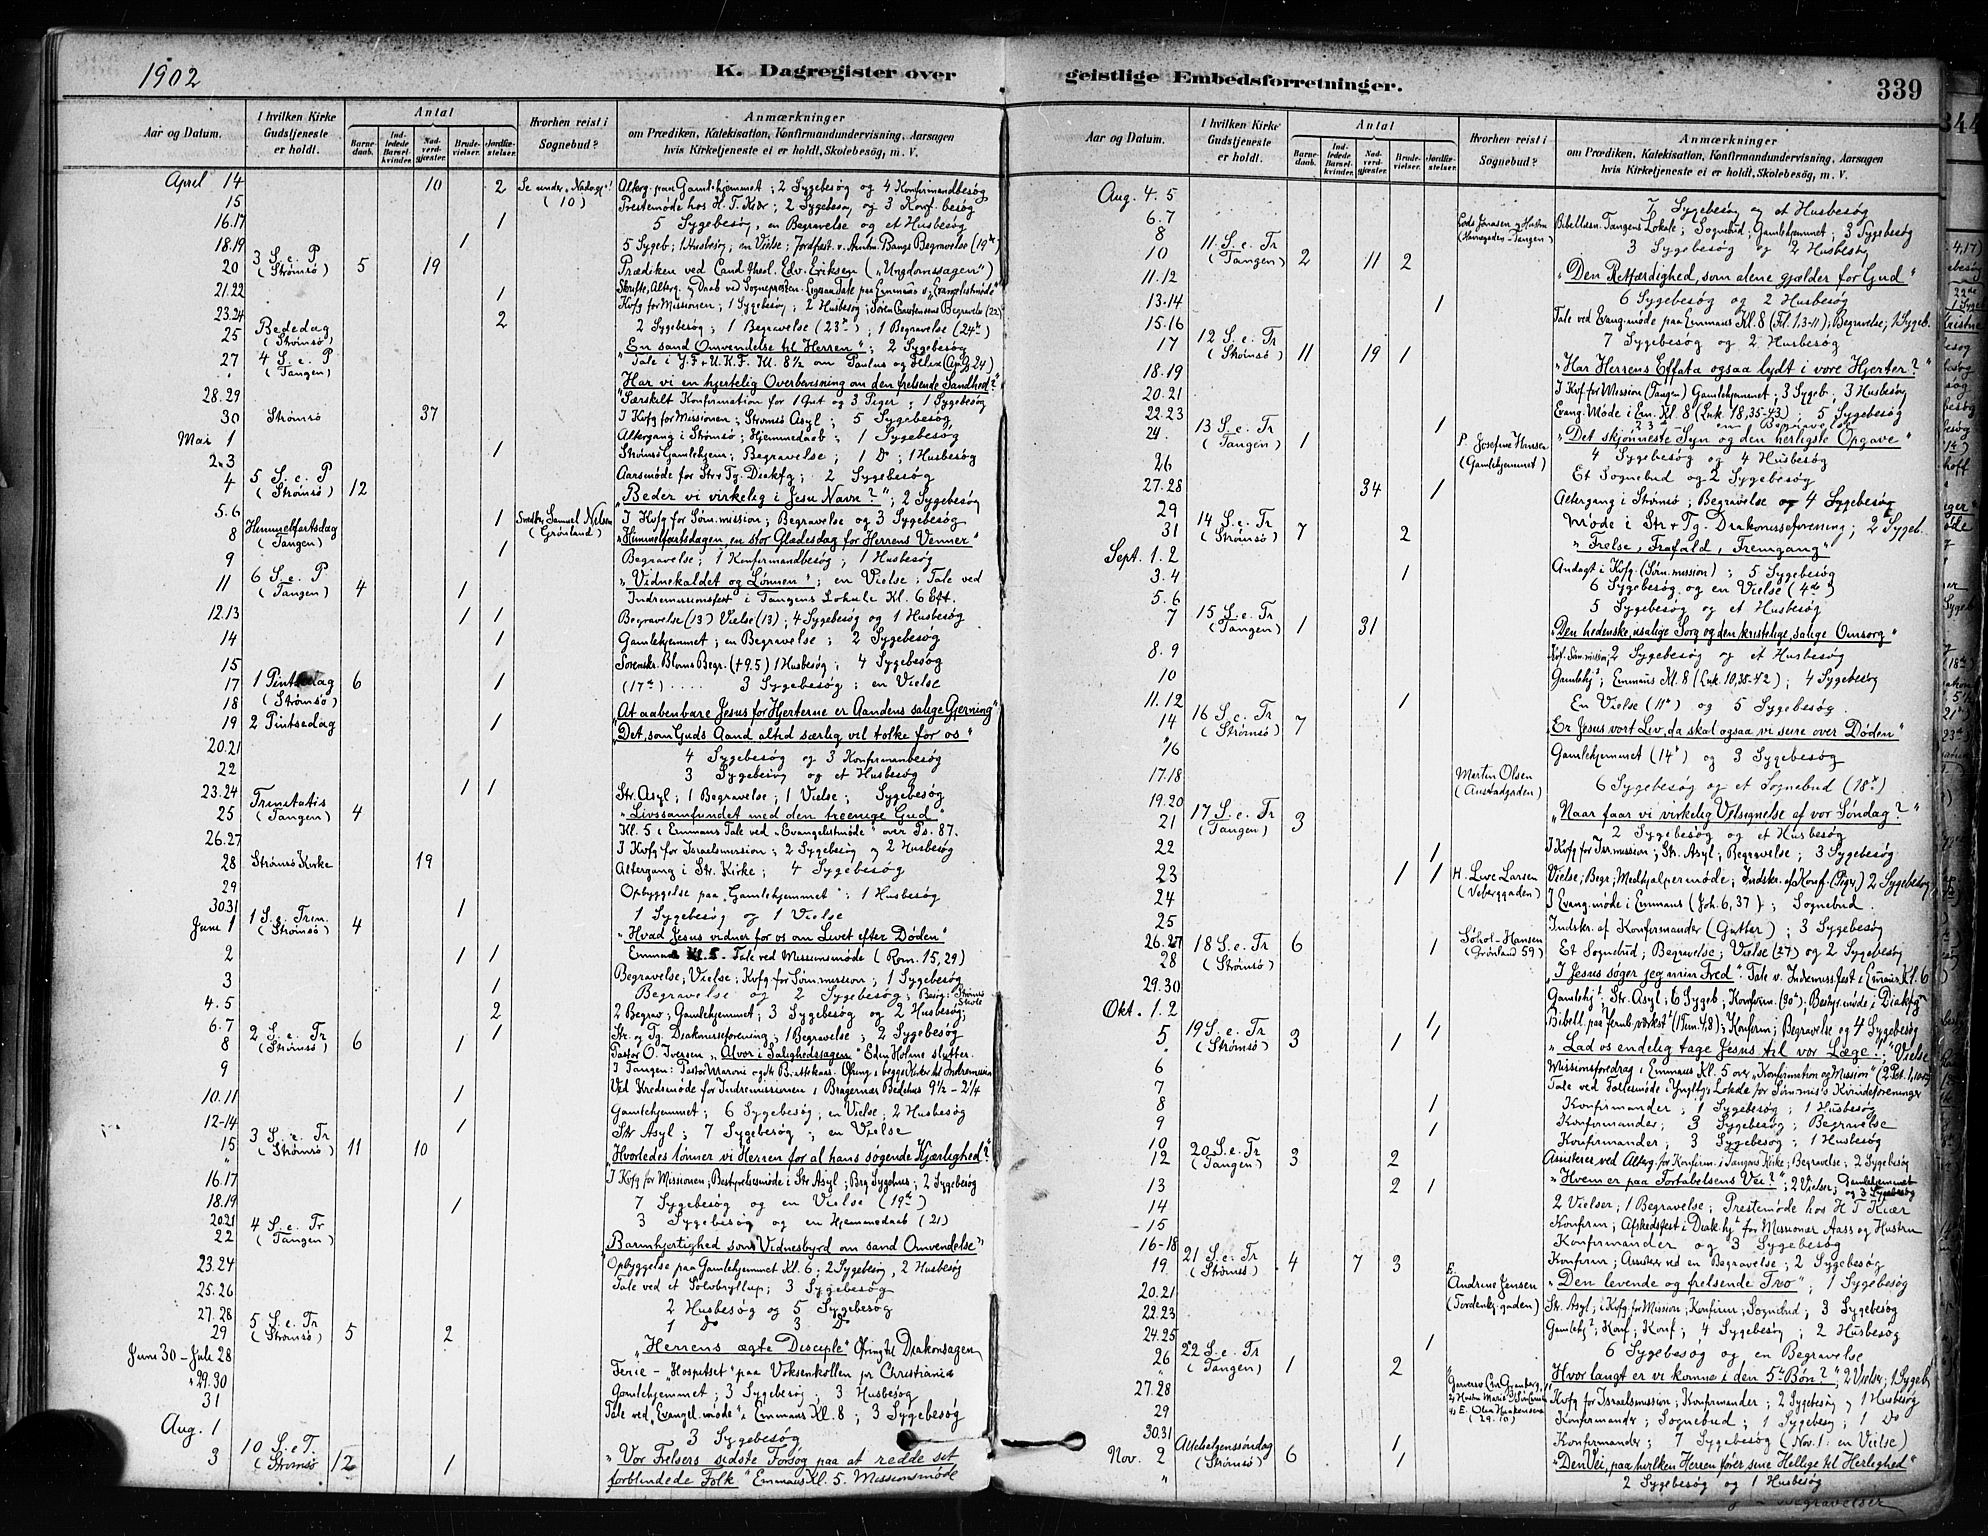 1902
K. Dagregister over geistlige Embedsforretninger.
339
Aar og Datum.
I hvilken Kirke Gudstjeneste er holdt.
Antal
Barnedaab.
Indledede Barselkvinder.
Nadverdgjester.
Brudevielser.
Jordfæstelser.
Hvorhen reist i Sognebud?
Anmærkninger
om Prædiken, Katekisation, Konfirmandundervisning, Aarsagen
hvis Kirketjeneste ei er holdt, Skolebesøg, m. V.
April 14 10 2 Se under „Nadvgj"! (10) Alterg. paa Gamlehjemmet; 2 Sygebesøg og 4 Konfirmandbesøg
15 Prestemøde hos H. T. Kiær; 2 Sygebesøg og 3 Konf. besøg
16.17 1 5 Sygebesøg, en Begravelse og et Husbesøg
18.19 1 5 Sygeb; 1 Husbesøg; en Vielse; Jordfæst. v. Amtm. Bangs Begravelse (19de)
20 3 S. e. P (Strømsø) 5 19 Prædiken ved Cand. theol. Edv. Eriksen („Ungdomssagen")
21.22 1 Skrifte, Alterg. og Daab ved Sognepresten.
23.24 2 Kvfg for Missionen; 1 Sygebesøg; 2 Husbesøg;
2 Sygebesøg; 1 Begravelse (23de); 1 Begravelse (24de)
25 Bededag (Strømsø) „En sand Omvendelse til Herren"; 2 Sygebesøg
27 4 S. e. P (Tangen) Kl. 8½ om Paulus og Felix
„Har vi en hjertelig Overbevisning om den frelsende Sandhed?"
28.29 Særskilt Konfirmation for 1 Gut og 3 Piger; 1 Sygebesøg
30 Strømsø 37 I Kvfg for Missionen; Strømsø Asyl; 5 Sygebesøg
Mai 1 Altergang i Strømsø; Hjemmedaab; 1 Sygebesøg
2 3 1 Strømsø Gamlehjem; Begravelse; 1 Do; 1 Husbesøg
4 5 S. e. P (Strømsø) 12 Aarsmøde for Str + Tg. Diakfg; 2 Sygebesøg
„Beder vi virkelig i Jesu Navn?"; 2 Sygebesøg
5.6 1 Samuel Nilsen (Grønland) I Kvfg for Sømmission; Begravelse og 3 Sygebesøg
8 Himmelfartsdag (Tangen) „Himmelfartsdagen, en stor Glædesdag for Herrens Venner"
9 1 Begravelse; 1 Konfirmandbesøg; 1 Husbesøg
11 6 S. e. P (Tangen) 4 1 „Vidnekaldet og Lønnen"; en Vielse; Tale ved
Indremissionsfest i Tangens Lokale Kl. 6 Eft.
12.13 1 1 Begravelse (13) Vielse (13); 4 Sygebesøg og 1 Husbesøg
14 1 Gamlehjemmet; en Begravelse; 2 Sygebesøg
15 Sorenskr. Bloms Begr. (+9.5) 1 Husbesøg; 4 Sygebesøg
17 1 Pintsedag (Strømsø) 6 1 (17de) .... 3 Sygebesøg; en Vielse
18 „At aabenbare Jesus for Hjerterne er Aandens salige Gjerning"
19 2 Pintsedag 1 „Det, som Guds Aand altid særlig vil tolke for os"
20.21 4 Sygebesøg og 3 Konfirmanbesøg
22 3 Sygebesøg og et Husbesøg
23.24 1 1 Str. Asyl; 1 Begravelse; 1 Vielse; Sygebesøg
25 Trinitatis (Tangen) 4 „Livssamfundet med den treenige Gud"
Kl. 5 i Emmaus Tale ved „Evangelistmøde" over Ps. 87.
26.27 I Kvfg for Israelsmission; 2 Sygebesøg og 2 Husbesøg
28 Strømsø Kirke 19 Altergang i Str. Kirke; 4 Sygebesøg
29 Opbyggelse paa „Gamlehjemmet"; 1 Husbesøg
30.31 1 1 Sygebesøg og 1 Vielse
Juni 1 1 S. e. Trin. (Strømsø) 4 „Hvad Jesus vidner for os om Livet efter Døden"
Emmaus Kl. 5. Tale ved Missionsmøde (Rom. 15, 29)
2 1 1 Begravelse, Vielse; Kvfg for Sømmission; 1 Sygebesøg
3 1 Begravelse og 2 Sygebesøg;
4.5 2 2 Begrav; Gamlehjemmet; 3 Sygebesøg og 2 Husbesøg;
6.7 1 Str. og Tg. Diakonisseforening; 1 Begravelse; 2 Sygebesøg
8 2 S. e. Tr (Strømsø) 6 1 Pastor O. Iversen „Alvor i Salighedssagen" Edw Holme slutter.
9 I Tangen: Pastor
Ved Kredsmøde for Indremissionen i Bragernæs Bedehus 9½ – 2¼
10.11 1 Gamlehjemmet; 6 Sygebesøg; en Vielse; 2 Husbesøg
12-14 1 Str Asyl; 7 Sygebesøg; en Vielse
15 3 S. e. Tr (Strømsø) 11 10 „Hvorledes lønner vi Herren for al hans søgende Kjærlighed?"
16.17 I Kvfg for Missionen; Bestyrelsesmøde i Str Asyl; Brg Sygehus; 2 Sygebesøg
18.19 1 7 Sygebesøg og en Vielse (19de)
20.21 3 Sygebesøg og en Hjemmedaab (21)
22 4 S. e. Tr (Tangen) „Barmhjertighed som Vidnesbyrd om sand Omvendelse"
23.24 Opbyggelse paa Gamlehjemmet Kl. 6; 2 Sygebesøg, 2 Husbesøg
25.26 Tale ved et Sølvbryllup; 3 Sygebesøg
27.28 2 Husbesøg og 5 Sygebesøg
1 Do 3 Do
29 5 S. e. Tr (Strømsø) 5 2 „Herrens ægte Disciple" Ofring til Diakonsagen
Juni 30 – Juli 28 Ferie – „Hospitset" paa Voksenkollen pr Christiania
29.30 Gamlehjemmet; 3 Sygebesøg; 3 Husbesøg
31 Tale ved „Evangel. møde" i Emmaus Kl. 8; 3 Sygebesøg
Aug. 1 3 Sygebesøg
3 10 S. e. T. (Strømsø) 12 1 „Vor Frelsers sidste Forsøg paa at redde sit
forblindede Folk" Emmaus Kl. 5. Missionsmøde
Aar og Datum.
I hvilken Kirke Gudstjeneste er holdt.
Antal
Barnedaab.
Indledede Barselkvinder.
Nadverdgjester.
Brudevielser.
Jordfæstelser.
Hvorhen reist i Sognebud?
Anmærkninger
om Prædiken, Katekisation, Konfirmandundervisning, Aarsagen
hvis Kirketjeneste ei er holdt, Skolebesøg, m. V.
Aug. 4. 5 7 Sygebesøg og et Husbesøg
6.7 Jonasen og Hustru (Tangen) Bibellesn. Tangens Lokale; Sognebud; Gamlehjemmet; 3 Sygebesøg
8 3 Sygebesøg og 2 Husbesøg
10 11 S. e. Tr (Tangen) 2 11 2 „Den Retfærdighed, som alene gjælder for Gud"
11.12 6 Sygebesøg og 2 Husbesøg
13.14 1 Tale ved Evang. møde paa Emmaus Kl. 8 (Fil. 1,3-11); Begravelse; 1 Sygeb.
15.16 7 Sygebesøg og 2 Husbesøg
17 12 S. e. Tr (Strømsø) 11 19 1 „Har Herrens Effata ogsaa lydt i vore Hjerter?"
18.19 I Kvfg for Mission (Tangen) Gamlehjemmet; 3 Sygeb; 3 Husbesøg
20.21 Evang. Møde i Em. Kl. 8 (Luk. 18,35-43); 5 Sygebesøg
22.23 1 23de – en Begravelse
24. 13 S. e. Tr (Tangen) 1 P. Josefine Hansen (Gamlehjemmet) „Det skjønneste Syn og den herligste Opgave"
4 Sygebesøg og 4 Husbesøg
26 Et Sognebud og 2 Sygebesøg
27.28 34 1 Altergang i Strømsø; Begravelse og 4 Sygebesøg
29 Møde i Str + Tg. Diakonisseforening; 2 Sygeb.
31 14 S. e. Tr (Strømsø) 7 2 „Frelse, Frafald, Fremgang"
Sept. 1. 2 Andagt i Kvfg. (Sømmission); 5 Sygebesøg
3. 4 1 6 Sygebesøg og en Vielse (4de)
5. 6 5 Sygebesøg og et Husbesøg
7 15 S. e. Tr (Tangen) 1 31 „Den hedenske, usalige Sorg og den kristelige, salige Omsorg"
8. 9 Kvf. Sømmission; 2 Sygebesøg og et Husbesøg
10 Gamlehj; Emmaus Kl. 8 (Luk. 10,38-42); 4 Sygebesøg
11.12 1 En Vielse (11te) og 5 Sygebesøg.
14 16 S. e. Tr (Strømsø) 7 „Er Jesus vort Liv, da skal ogsaa vi seire over Døden"
16 Gamlehjemmet (14de) og 3 Sygebesøg
17.18 Martin Olsen (Austadgaden) 6 Sygebesøg og et Sognebud (18de)
19.20 „Naar faar vi virkelig Velsignelse af vor Søndag?"
21 17 S. e. Tr (Tangen) 3 2 Sygebesøg og et Husbesøg
22 1 I Kvfg for Isr. mission; Str. Asyl; Begravelse; 3 Sygebesøg
23 1 1 H. Live Larsen Vielse; Begr; Medhjælpermøde; Indskr. af Konf. (Piger) 2 Sygebesøg
24 I Evang. møde i Emmaus (Joh. 6, 37); Sognebud.
25 Indskr. af Konfirmander (Gutter); 3 Sygebesøg
26.27 18 S. e. Tr (Strømsø) 6 1 Hansen (Grønland 59) Et Sognebud; Begravelse; Vielse (27) og 2 Sygebesøg
28 „I Jesus søger jeg min Fred". Tale v. Indremiss.fest i Emaus Kl. 6
29.30 Gamlehj; Str. Asyl; 6 Sygeb; Konfirm. (30te), Bestyr. møde i Diakfg
Okt. 1. 2 1 Konfirm; Begravelse og 4 Sygebesøg
5 19 S. e. Tr (Strømsø) 3 1 1 „Lad os endelig tage Jesus til vor Læge!"; Vielse
6 Missionsforedrag i Emmaus Kl. 5 over „Konfirmation og Mission"
7 Tale ved Fællesmøde i Ynglfgs Lokale for Sømmis's Kvindeforeninger
8 1 Konfirmander; 1 Sygebesøg; 1 Husbesøg
9 1 Konfirmander; 3 Sygebesøg; Begravelse
10 Konfirmander; 3 Sygebesøg; 1 Husbesøg
12 20 S. e. Tr (Tangen) 3 2 Assisterer ved Alterg. for Konfirm. i Tangens Kirke; Begravelse; 2 Sygebesøg
13 2 1 „Hvem er paa Fortabelsens Vei?"; 2 Vielser; Gamlehjemmet og 3 Sygebesøg
14 2 Vielser; 1 Begravelse; Prestemøde hos H T Kiær
15 Konfirm; Afskedsfest i Diak.hj for Missionær Aass og Hustru
16-18 Konfirmander og 3 Sygebesøg
19 21 S. e. Tr (Strømsø) 4 7 3 Konfirm; Assisterer ved en Begravelse; 2 Sygebesøg
E. Andrine Jensen (Tordenskj.gaden) „Den levende og frelsende Tro"; 1 Sygebesøg
20.21 Str. Asyl; i Kvfg for Mission; Konfirm; Sognebud; 3 Sygebesøg
22.23 Gamlehj; Konf; Konf; 4 Sygebesøg; 2 Husbesøg
24.25 1 6 Sygebesøg og en Begravelse
26 22 S. e. Tr (Tangen) 1 2 „Hvor langt er vi komne i den 5te Bøn?"; 2 Vielser; 1 Sygeb
27.28 Kvfg for Israelsmission; Konfirmander; 2 Sygebesøg og 1 Husbesøg
29 (29.10) Konfirmander; Sognebud; 1 Sygebesøg; 1 Do
30.31 1 Konfirmander; 7 Sygebesøg (Nov. 1: en Vielse)
Nov. 2 Allehelgenssøndag (Strømsø) 6 1 „Den Vei, paa hvilken Herren fører sine Hellige til Herlighed"
2 Sygebesøg og 1 Husbesøg
2 Begravelser